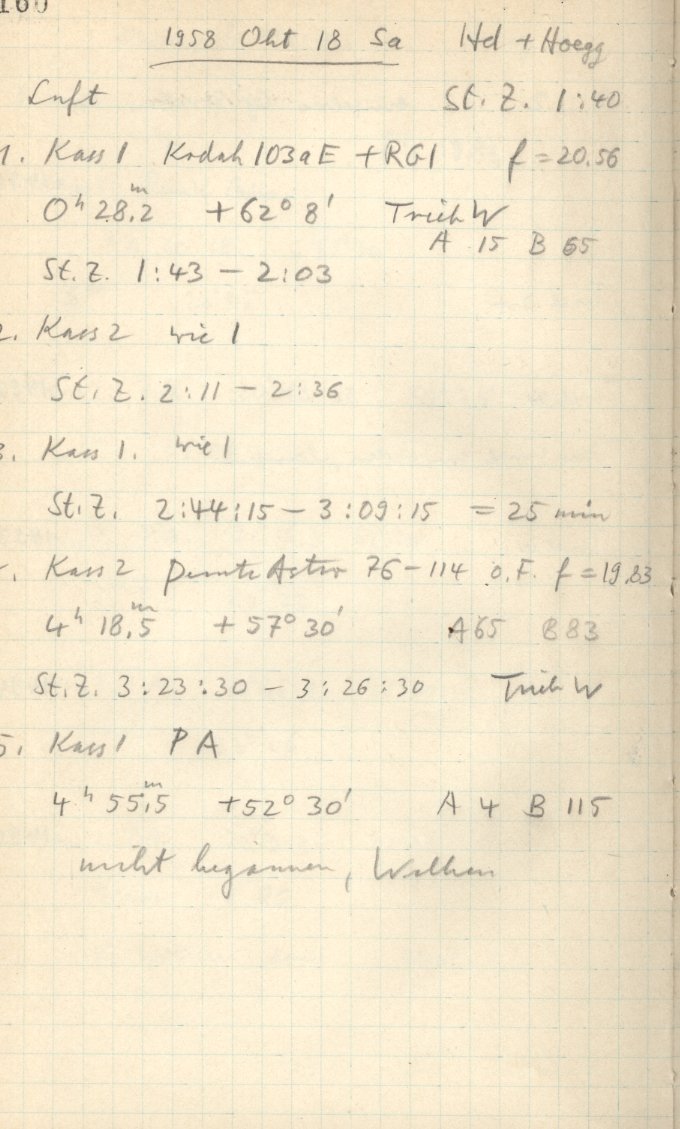 160
1958 Okt 18 Sa Hd + Hoegg
Luft St. Z. 1:40
1. Kass 1 Kodak 103aE + RG1 f = 20.56
0ʰ 28.2ᵐ +62° 8' Trieb W
A 15 B 65
St. Z. 1:43 – 2:03
2. Kass 2 wie 1
St. Z. 2:11 – 2:36
3. Kass 1. wie 1
St. Z. 2:44:15 – 3:09:15 = 25 min
Kass 2 Perutz Astro 76–114 o.F. f = 19.83
4ʰ 18.5ᵐ +57° 30' A 65 B 83
St. Z. 3:23:30 – 3:26:30 Trieb W
5. Kass 1 PA
4ʰ 55.5ᵐ +52° 30' A 4 B 115
nicht begonnen, Wolken